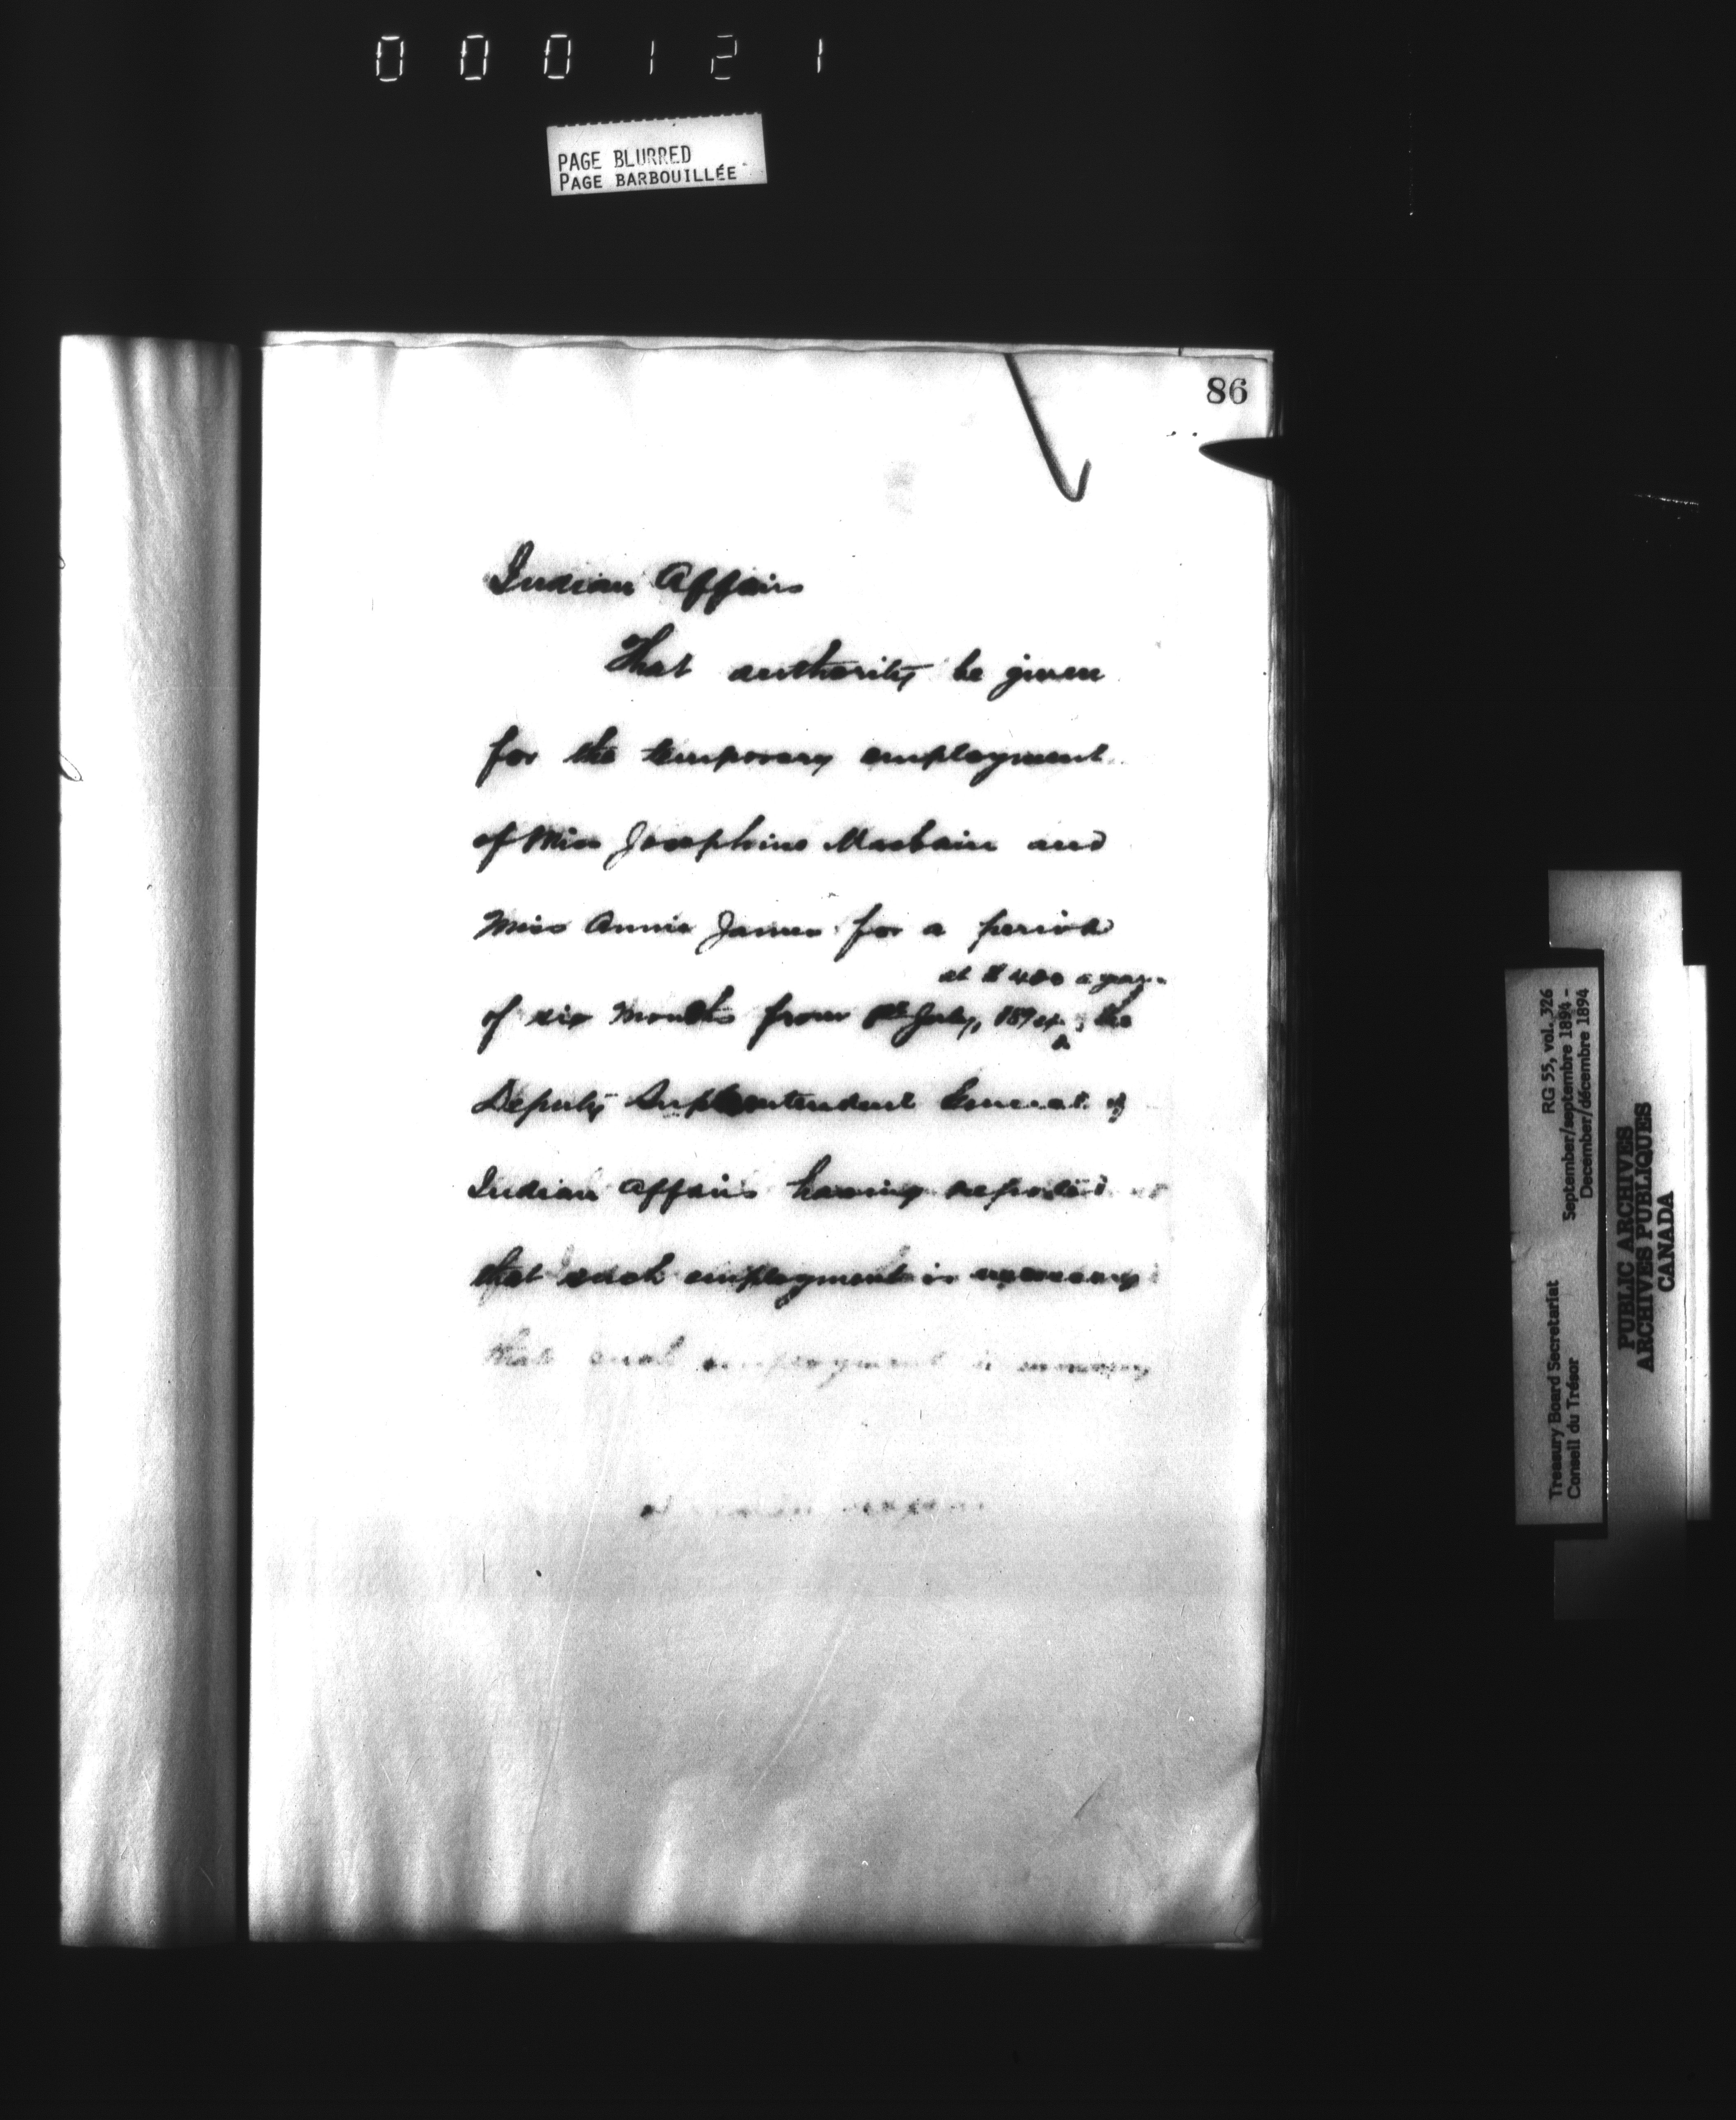 000121
PAGE BLURRED
PAGE BARBOUILLÉE
86
Indian Affairs
That authority be given
for the temporary employment
of Miss Josephine Macbain and
Miss Annie James for a period
at $400 a year
of six months from 1st July, 1894, the
Deputy Superintendent General of
Indian Affairs having reported
that such employment is necessary
that such employment is necessary
RG 55, vol. 326
September/septembre 1894 -
December/décembre 1894
Treasury Board Secretariat
Conseil du Trésor
PUBLIC ARCHIVES
ARCHIVES PUBLIQUES
CANADA